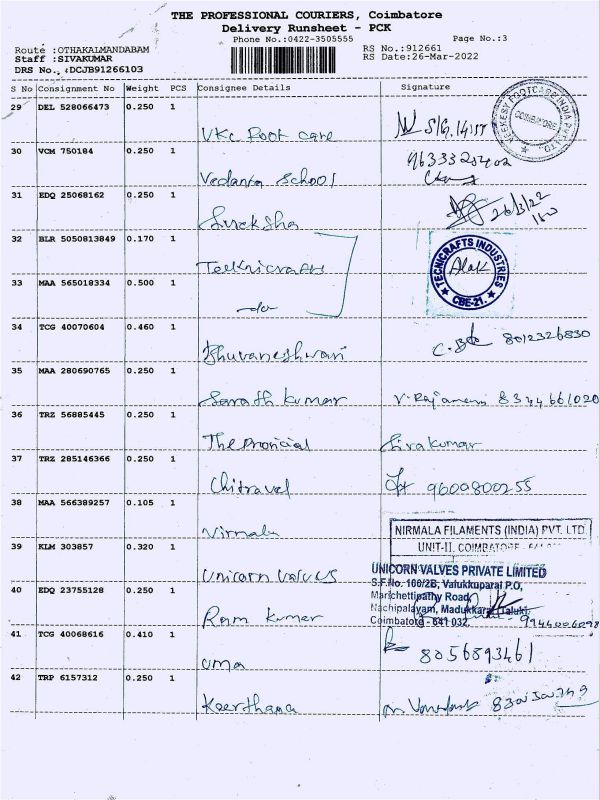 THE PROFESSIONAL COURIERS, Coimbatore
Delivery Runsheet - PCK
Phone No.:0422-3505555 Page No.:3
Route :OTHAKALMANDABAM RS No.:912661
Staff :SIVAKUMAR RS Date:26-Mar-2022
DRS No., :DCJB91266103
S No Consignment No Weight PCS Consignee Details Signature
29 DEL 528066473 0.250 1
VKC Foot care
COIMBATORE
30 VCM 750184 0.250 1
Vedanta School
31 EDQ 25068162 0.250 1
Sureksha 26/3/22
32 BLR 5050813849 0.170 1
Tecknicrafts
TECNICRAFTS INDUSTRIES
CBE-21.
33 MAA 565018334 0.500 1
-do-
34 TCG 40070604 0.460 1
Bhuvaneshwari 8012326830
35 MAA 280690765 0.250 1
Sarath kumar 8344661020
36 TRZ 56885445 0.250 1
The Provicial Sivakumar
37 TRZ 285146366 0.250 1
Chitravel 9600800255
38 MAA 566389257 0.105 1
Nirmala
NIRMALA FILAMENTS (INDIA) PVT. LTD.
UNIT-II, COIMBATORE
39 KLM 303857 0.320 1
Unicorn valves
UNICORN VALVES PRIVATE LIMITED
S.F.No. 100/2B, Valukkuparai P.O,
Marichettipathy Road,
Nachipalayam, Madukkarai Taluki,
Coimbatore - 641 032.
40 EDQ 23755128 0.250 1
Ram kumar
41 TCG 40068616 0.410 1
uma 8056893461
42 TRP 6157312 0.250 1
Keerthana